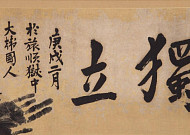 獨立
庚戌二月
於旅順獄中
大韓國人